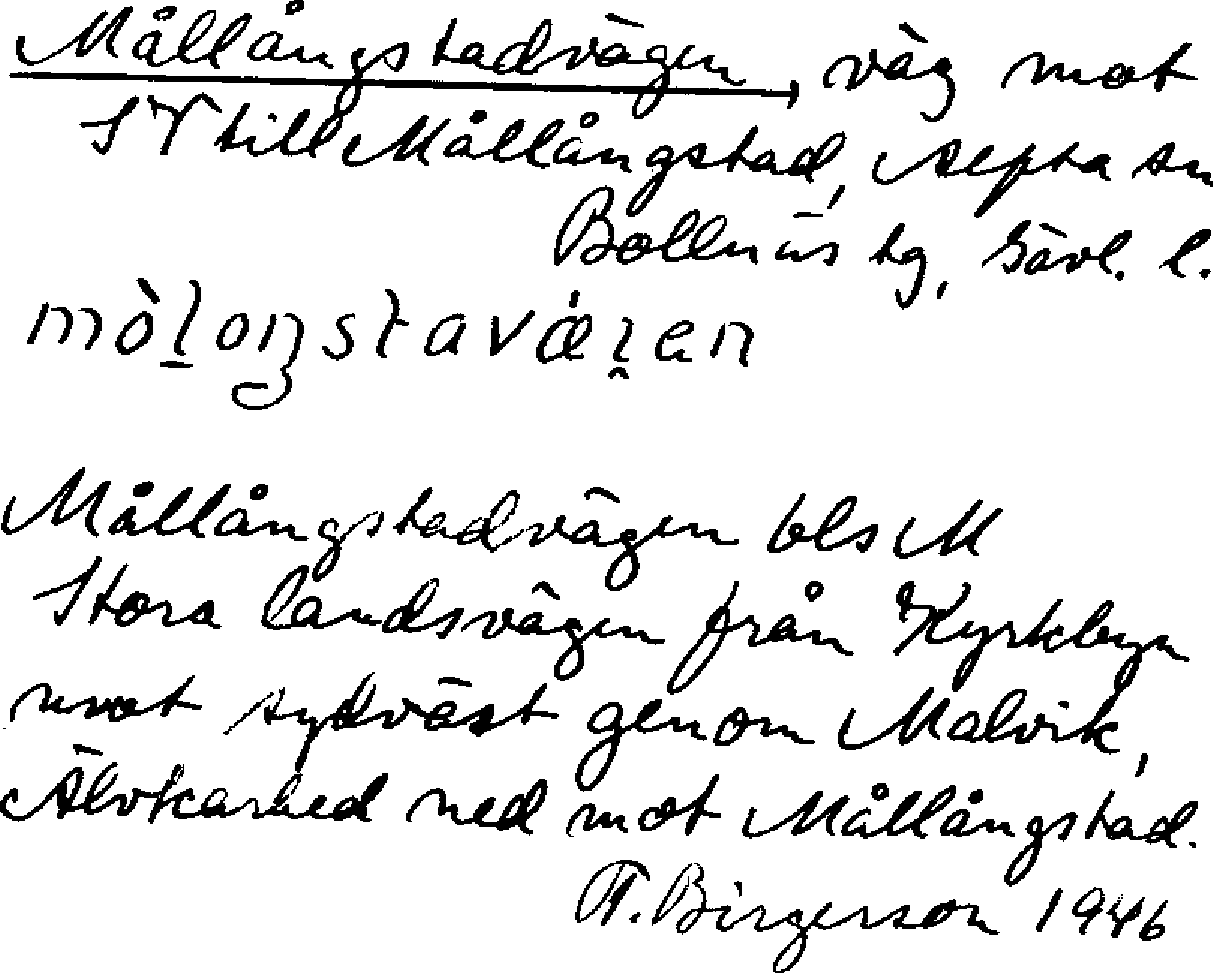 Mållångstadvägen, väg mot
SV till Mållångstad, Alfta sn
Bollnäs tg, Gävl. l.
mòloŋstavá̤ꞎen
Mållångstadvägen bls M
Stora landsvägen från Kyrkbyn
mot sydväst genom Malvik,
Älvkarhed ned mot Mållångstad.
T. Birgerson 1946